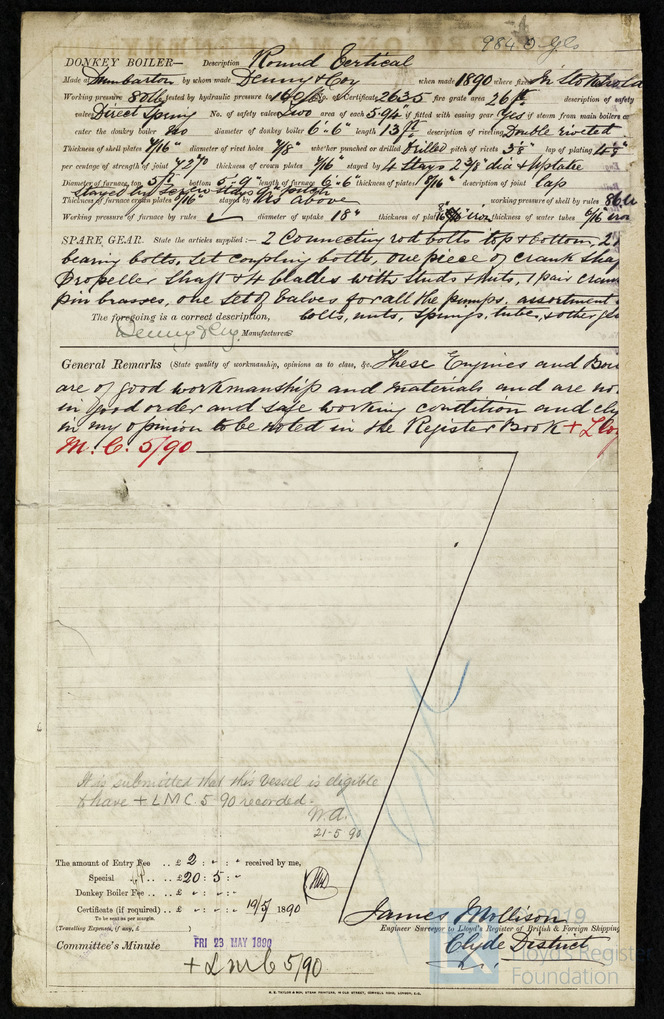 984.0 Gls
DONKEY BOILER— Description Round Vertical
Made at Dumbarton by whom made Denny & Coy when made 1890 where fixed In Stokehold
Working pressure 80lb tested by hydraulic pressure to No. of Certificate 2635 fire grate area 26 ft description of safety
valves Direct Spring No. of safety valves Two area of each 5.94 if fitted with easing gear Yes if steam from main boilers can
enter the donkey boiler No diameter of donkey boiler 6'-6" length description of riveting Double riveted
Thickness of shell plates 7/16" diameter of rivet holes 7/8" whether punched or drilled Drilled pitch of rivets lap of plating
per centage of strength of joint thickness of crown plates 7/16" stayed by 4 Stays 2 3/8" dia & Uptake
Diameter of furnace, top bottom 5'-9" length of furnace 6'-6" thickness of plates 9/16" description of joint Lap
Thickness of furnace crown plates 9/16" stayed by As above working pressure of shell by rules
Working pressure of furnace by rules diameter of uptake 18" thickness of plates iron thickness of water tubes 6/16 iron
SPARE GEAR. State the articles supplied:— 2 Connecting rod bolts top & bottom, 2
bearing bolts, set coupling bolts, one piece of crank shaf
Propeller shaft & 4 blades with studs & nuts, 1 pair cran
pin brasses, one set of valves for all the pumps, assortment
bolts, nuts, springs, tubes, & other
The foregoing is a correct description,
Denny & Coy. Manufacturers
General Remarks (State quality of workmanship, opinions as to class, &c. These Engines and Boi
are of good workmanship and materials and are no
in good order and safe working condition and eli
in my opinion to be noted in the Register Book + Lloy
M. C. 5/90
It is submitted that this vessel is eligible
to have + LMC 5.90 recorded.
W.A.
21-5-90
The amount of Entry Fee .. £ 2 : - : - received by me,
Special .. £20 : 5 : -
Donkey Boiler Fee .. £ - : - : -
Certificate (if required) .. £ - : - : - 19/5/1890
To be sent as per margin.
(Travelling Expenses, if any, £ )
James Mollison
Engineer Surveyor to Lloyd's Register of British & Foreign Shipping
Clyde District
Committee's Minute FRI 23 MAY 1890
+ L M C 5/90
Lloyd's Register
Foundation